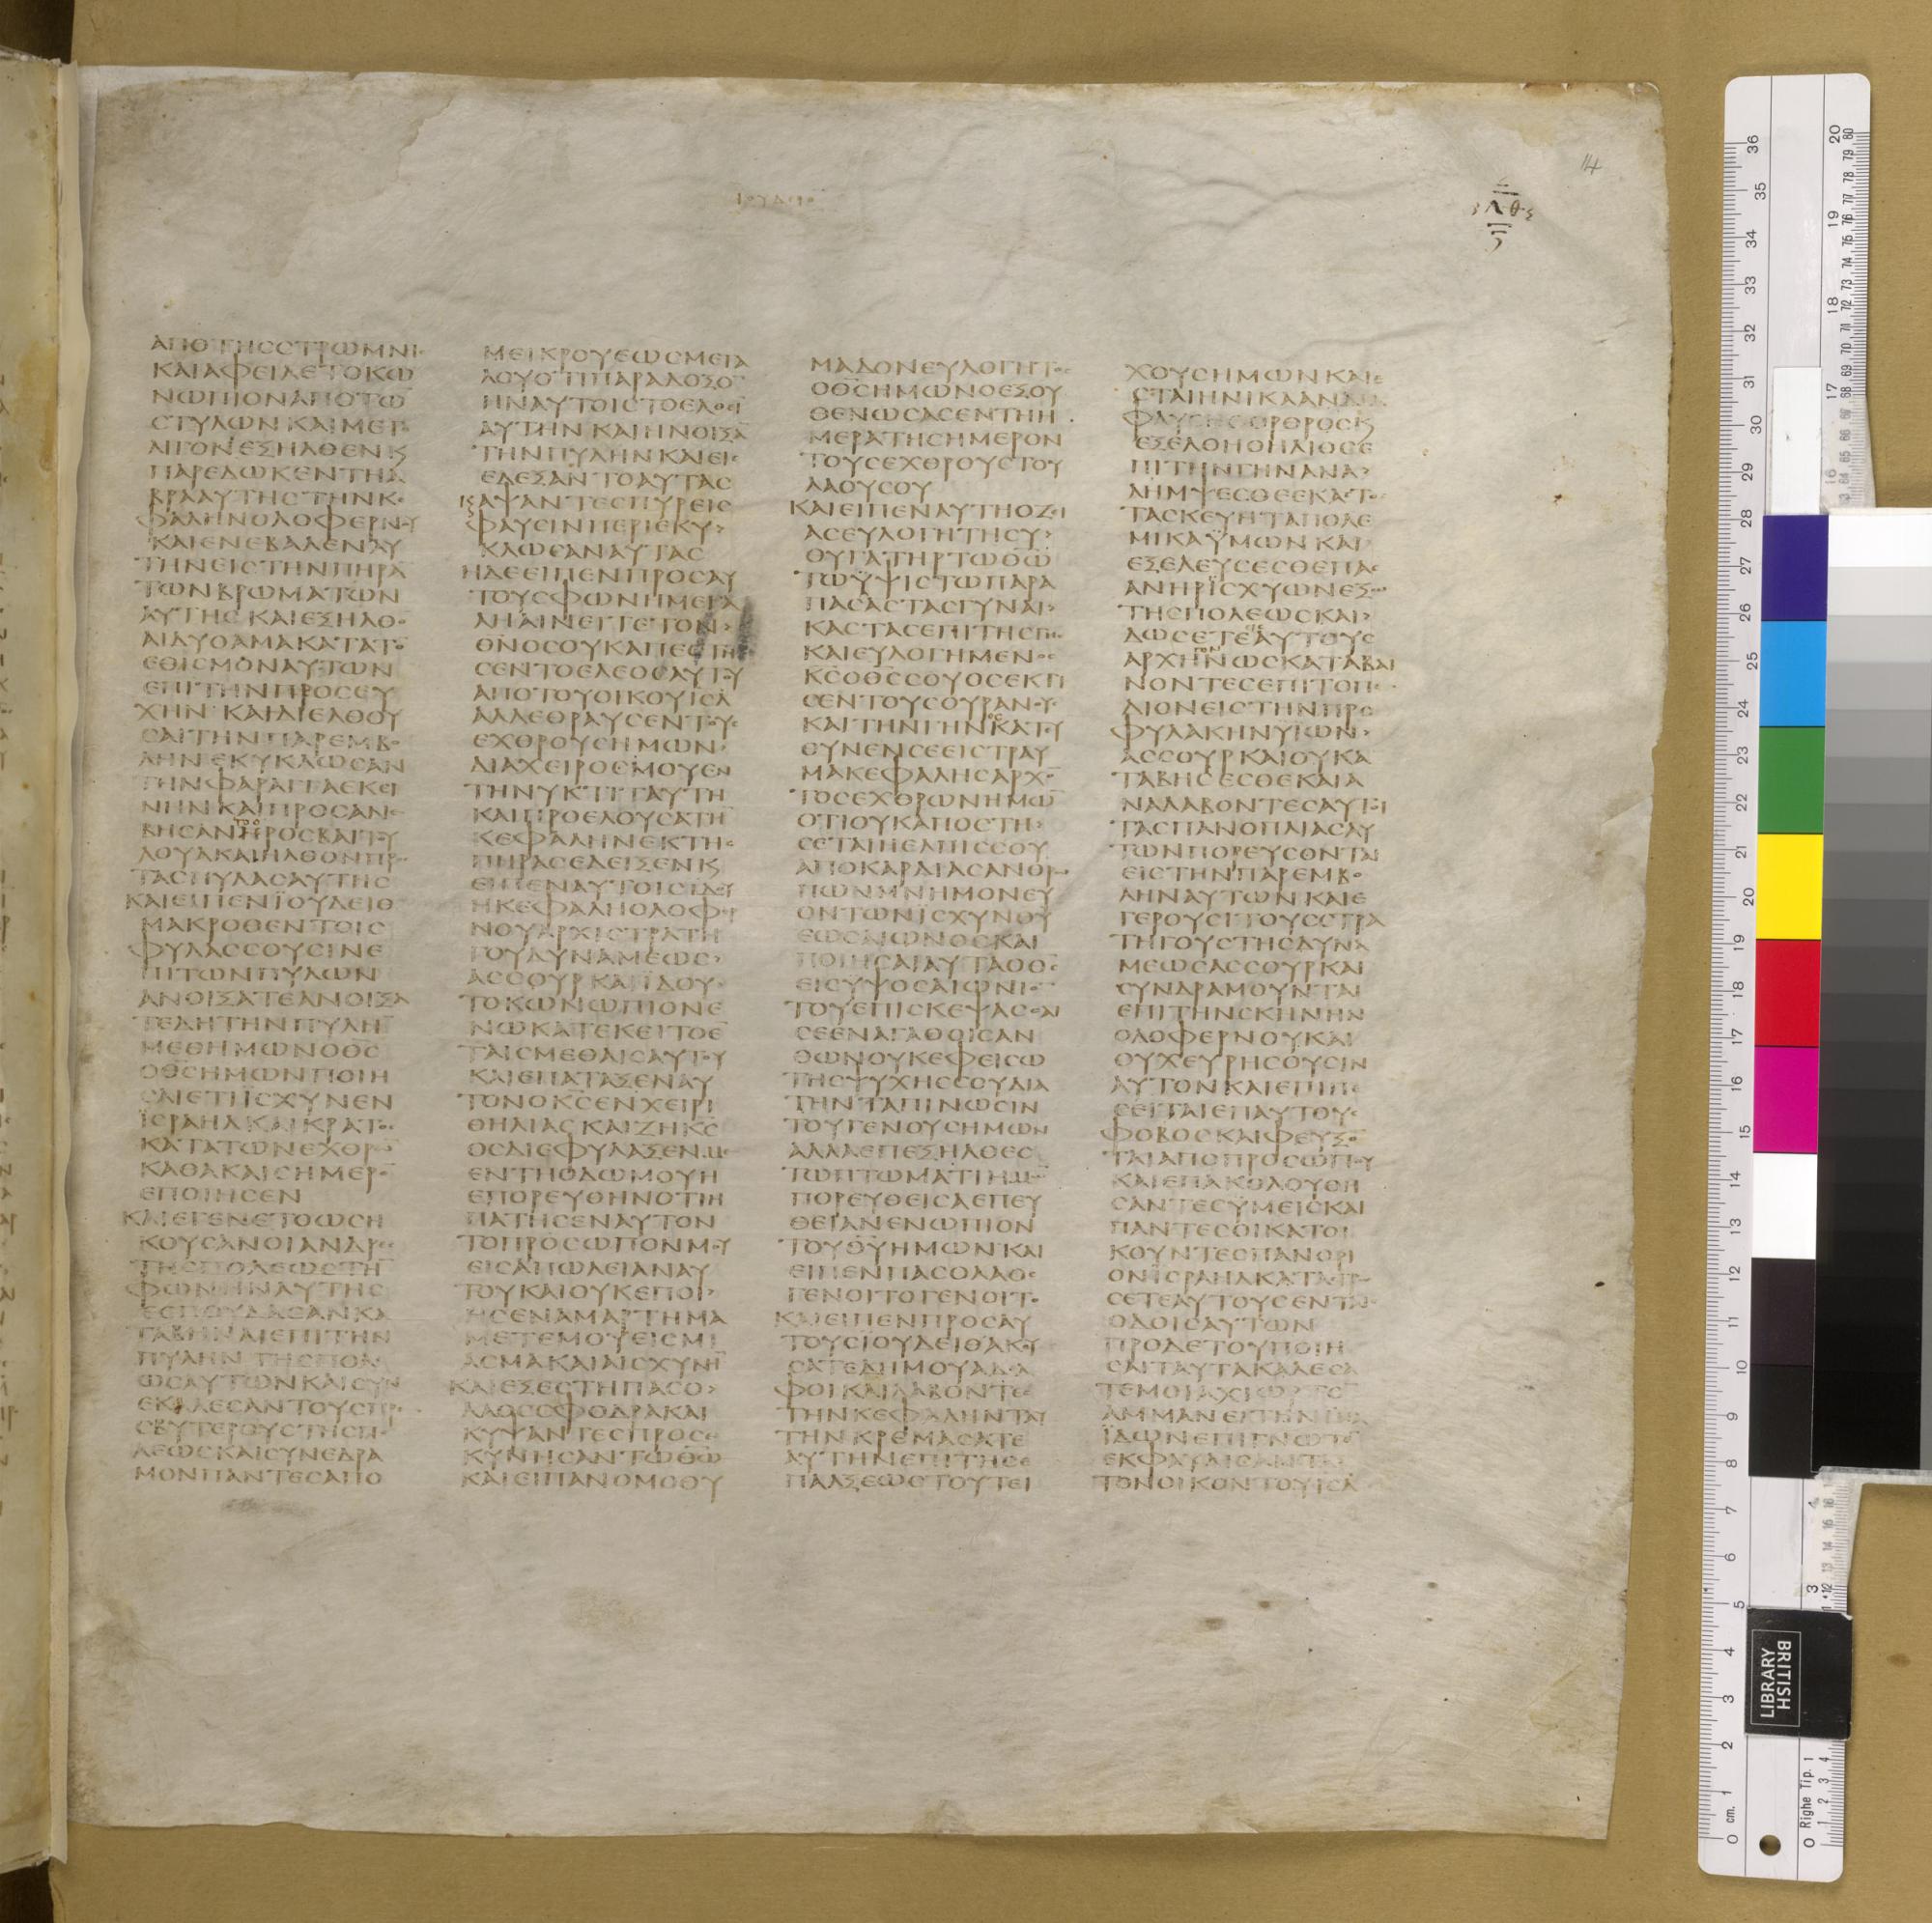 14
ΙΟΥΔΙΘ
ΛΘ
ΑΠΟΤΗССΤΡΩΜΝΗ
ΚΑΙΑΦΕΙΛΕΤΟΚΩ
ΝΩΠΙΟΝΑΠΟΤΩ̅
СΤΥΛΩΝΚΑΙΜΕΤ
ΛΙΓΟΝΕΞΗΛΘΕΝΚϚ
ΠΑΡΕΔΩΚΕΝΤΗΑ
ΒΡΑΑΥΤΗСΤΗΝΚΕ
ΦΑΛΗΝΟΛΟΦΕΡΝΟΥ
ΚΑΙΕΝΕΒΑΛΕΝΑΥ
ΤΗΝΕΙСΤΗΝΠΗΡΑ̅
ΤΩΝΒΡΩΜΑΤΩΝ
ΑΥΤΗСΚΑΙΕΞΗΛΘΟ
ΑΙΔΥΟΑΜΑΚΑΤΑΤΟ
ΕΘΙСΜΟΝΑΥΤΩΝ
ΕΠΙΤΗΝΠΡΟСΕΥ
ΧΗΝΚΑΙΔΙΕΛΘΟΥ
СΑΙΤΗΝΠΑΡΕΜΒΟ
ΛΗΝΕΚΥΚΛΩСΑΝ
ΤΗΝΦΑΡΑΓΓΑΕΚΕΙ
ΝΗΝΚΑΙΠΡΟСΑΝΕ
ΒΗСΑΝΠΡΟСΒΑΙΤΥ
ΛΟΥΑΚΑΙΗΛΘΟΝΠΡΟС
ΤΑСΠΥΛΑСΑΥΤΗС
ΚΑΙΕΙΠΕΝΪΟΥΔΕΙΘ
ΜΑΚΡΟΘΕΝΤΟΙС
ΦΥΛΑССΟΥСΙΝΕ
ΠΙΤΩΝΠΥΛΩΝ
ΑΝΟΙΞΑΤΕΑΝΟΙΞΑ
ΤΕΔΗΤΗΝΠΥΛΗ̅
ΜΕΘΗΜΩΝΟΘ̅С̅
ΟΘ̅С̅ΗΜΩΝΠΟΙΗ
СΑΙΕΤΙΪСΧΥΝΕΝ
ΪСΡΑΗΛΚΑΙΚΡΑΤΟС
ΚΑΤΑΤΩΝΕΧΘΡΩ̅
ΚΑΘΑΚΑΙСΗΜΕΡΟ̅
ΕΠΟΙΗСΕΝ
ΚΑΙΕΓΕΝΕΤΟΩСΗ
ΚΟΥСΑΝΟΙΑΝΔΡΕС
ΤΗСΠΟΛΕΩСΤΗ̅
ΦΩΝΗΝΑΥΤΗС
ΕСΠΟΥΔΑСΑΝΚΑ
ΤΑΒΗΝΑΙΕΠΙΤΗΝ
ΠΥΛΗΝΤΗСΠΟΛΕ
ΩСΑΥΤΩΝΚΑΙСΥΝ
ΕΚΑΛΕСΑΝΤΟΥСΠΡΕ
СΒΥΤΕΡΟΥСΤΗСΠΟ
ΛΕΩСΚΑΙСΥΝΕΔΡΑ
ΜΟΝΠΑΝΤΕСΑΠΟ
ΜΕΙΚΡΟΥΕΩСΜΕΓΑ
ΛΟΥΟΤΙΠΑΡΑΔΟΞΟ̅
ΗΝΑΥΤΟΙСΤΟΕΛΘΕΙ
ΑΥΤΗΝΚΑΙΗΝΟΙΞΑ̅
ΤΗΝΠΥΛΗΝΚΑΙΕΙС
ΕΔΕΞΑΝΤΟΑΥΤΑС
ΚϚΑΨΑΝΤΕСΠΥΡΕΙС
ΦΑΥСΙΝΠΕΡΙΕΚΥ>
ΚΛΩСΑΝΑΥΤΑС
ΗΔΕΕΙΠΕΝΠΡΟСΑΥ
ΤΟΥСΦΩΝΗΜΕΓΑ
ΛΗΑΙΝΕΙΤΕΤΟΝ>
ΘΝ̅ΟСΟΥΚΑΠΕСΤΗ
СΕΝΤΟΕΛΕΟСΑΥΤΟΥ
ΑΠΟΤΟΥΟΙΚΟΥΙС̅Λ̅
ΑΛΛΕΘΡΑΥСΕΝΤΟΥС
ΕΧΘΡΟΥСΗΜΩΝ>
ΔΙΑΧΕΙΡΟСΜΟΥΕΝ
ΤΗΝΥΚΤΙΤΑΥΤΗ
ΚΑΙΠΡΟΕΛΟΥСΑΤΗ̅
ΚΕΦΑΛΗΝΕΚΤΗС
ΠΗΡΑСΕΔΕΙΞΕΝΚϚ
ΕΙΠΕΝΑΥΤΟΙСΙΔΟΥ
ΗΚΕΦΑΛΗΟΛΟΦΕΡ
ΝΟΥΑΡΧΙСΤΡΑΤΗ
ΓΟΥΔΥΝΑΜΕΩС>
ΑССΟΥΡΚΑΙΪΔΟΥ
ΤΟΚΩΝΩΠΙΟΝΕ
ΝΩΚΑΤΕΚΕΙΤΟΕ̅
ΤΑΙСΜΕΘΑΙСΑΥΤΟΥ
ΚΑΙΕΠΑΤΑΞΕΝΑΥ
ΤΟΝΟΚ̅С̅ΕΝΧΕΙΡΙ
ΘΗΛΙΑСΚΑΙΖΗΚ̅С̅
ΟСΔΙΕΦΥΛΑΞΕΝΜΕ
ΕΝΤΗΟΔΩΜΟΥΗ
ΕΠΟΡΕΥΘΗΝΟΤΙΗ
ΠΑΤΗСΕΝΑΥΤΟΝ
ΤΟΠΡΟСΩΠΟΝΜΟΥ
ΕΙСΑΠΩΛΕΙΑΝΑΥ
ΤΟΥΚΑΙΟΥΚΕΠΟΙ>
ΗСΕΝΑΜΑΡΤΗΜΑ
ΜΕΤΕΜΟΥΕΙСΜΙ
ΑСΜΑΚΑΙΑΙСΧΥΝΗ̅
ΚΑΙΕΞΕСΤΗΠΑСΟ>
ΛΑΟССΦΟΔΡΑΚΑΙ
ΚΥΨΑΝΤΕСΠΡΟСΕ
ΚΥΝΗСΑΝΤΩΘ̅Ω̅
ΚΑΙΕΙΠΑΝΟΜΟΘΥ
ΜΑΔΟΝΕΥΛΟΓΗΤΟС
ΟΘ̅С̅ΗΜΩΝΟΕΞΟΥ
ΘΕΝΩСΑСΕΝΤΗΗ
ΜΕΡΑΤΗСΗΜΕΡΟΝ
ΤΟΥСΕΧΘΡΟΥСΤΟΥ
ΛΑΟΥСΟΥ
ΚΑΙΕΙΠΕΝΑΥΤΗΟΖΕΙ
ΑСΕΥΛΟΓΗΤΗСΥ>
ΘΥΓΑΤΗΡΤΩΘ̅Ω̅
ΤΩΫΨΙСΤΩΠΑΡΑ
ΠΑСΑСΤΑСΓΥΝΑΙ>
ΚΑСΤΑСΕΠΙΤΗСΓΗС
ΚΑΙΕΥΛΟΓΗΜΕΝΟС
Κ̅С̅ΟΘ̅С̅СΟΥΟСΕΚΤΙ
СΕΝΤΟΥСΟΥΡΑΝΟΥС
ΚΑΙΤΗΝΓΗΝΚΑΤΟΥ
ΘΥΝΕΝСΕΕΙСΤΡΑΥ
ΜΑΚΕΦΑΛΗСΑΡΧΟ̅
ΤΟСΕΧΘΡΩΝΗΜΩ̅
ΟΤΙΟΥΚΑΠΟСΤΗ>
СΕΤΑΙΗΕΛΠΙССΟΥ
ΑΠΟΚΑΡΔΙΑСΑΝΘΡΩ
ΠΩΝΜΝΗΜΟΝΕΥ
ΟΝΤΩΝΪСΧΥΝΘΥ
ΕΩСΑΙΩΝΟСΚΑΙ
ΠΟΙΗСΑΙΑΥΤΑΟΘС
ΕΙСΥΨΟСΑΙΩΝΙΟ̅
ΤΟΥΕΠΙСΚΕΨΑСΘΑΙ
СΕΕΝΑΓΑΘΟΙСΑΝ
ΘΩΝΟΥΚΕΦΕΙСΩ
ΤΗСΨΥΧΗССΟΥΔΙΑ
ΤΗΝΤΑΠΙΝΩСΙΝ
ΤΟΥΓΕΝΟΥСΗΜΩΝ
ΑΛΛΑΕΠΕΞΗΛΘΕС
ΤΩΠΤΩΜΑΤΙΗΜΩ̅
ΠΟΡΕΥΘΕΙСΑΕΠΕΥ
ΘΕΙΑΝΕΝΩΠΙΟΝ
ΤΟΥΘ̅Υ̅ΗΜΩΝΚΑΙ
ΕΙΠΕΝΠΑСΟΛΑΟС
ΓΕΝΟΙΤΟΓΕΝΟΙΤΟ
ΚΑΙΕΙΠΕΝΠΡΟСΑΥ
ΤΟΥСΙΟΥΔΕΙΘΑΚΟΥ
СΑΤΕΔΗΜΟΥΑΔΕΛ
ΦΟΙΚΑΙΛΑΒΟΝΤΕС
ΤΗΝΚΕΦΑΛΗΝΤΑΥ
ΤΗΝΚΡΕΜΑСΑΤΕ
ΑΥΤΗΝΕΠΙΤΗСΕ
ΠΑΛΞΕΩСΤΟΥΤΕΙ
ΧΟΥСΗΜΩΝΚΑΙΕ
СΤΑΙΗΝΙΚΑΑΝΔΙΑ
ΦΑΥСΗСΟΡΘΡΟСΚϚ
ΕΞΕΛΘΗΟΗΛΙΟСΕ
ΠΙΤΗΝΓΗΝΑΝΑ>
ΛΗΜΨΕСΘΕΕΚΑΣΤΟС
ΤΑСΚΕΥΗΤΑΠΟΛΕ
ΜΙΚΑΫΜΩΝΚΑΙ
ΕΞΕΛΕΥСΕСΘΕΠΑС
ΑΝΗΡΪСΧΥΩΝΕΞΩ
ΤΗСΠΟΛΕΩСΚΑΙ>
ΔΩСΕΤΕΑΥΤΟΥС
ΑΡΧΗΓΟΝΩСΚΑΤΑΒΑΙ
ΝΟΝΤΕСΕΠΙΤΟΠΕ
ΔΙΟΝΕΙСΤΗΝΠΡΟ
ΦΥΛΑΚΗΝΥΪΩΝ>
ΑССΟΥΡΚΑΙΟΥΚΑ
ΤΑΒΗСΕСΘΕΚΑΙΑ
ΝΑΛΑΒΟΝΤΕСΑΥΤΟΙ
ΤΑСΠΑΝΟΠΛΙΑСΑΥ
ΤΩΝΠΟΡΕΥСΟΝΤΑΙ
ΕΙСΤΗΝΠΑΡΕΜΒΟ
ΛΗΝΑΥΤΩΝΚΑΙΕ
ΓΕΡΟΥСΙΤΟΥССΤΡΑ
ΤΗΓΟΥСΤΗСΔΥΝΑ
ΜΕΩСΑССΟΥΡΚΑΙ
СΥΝΔΡΑΜΟΥΝΤΑΙ
ΕΠΙΤΗΝСΚΗΝΗΝ
ΟΛΟΦΕΡΝΟΥΚΑΙ
ΟΥΧΕΥΡΗСΟΥСΙΝ
ΑΥΤΟΝΚΑΙΕΠΙΠΕ
СΕΙΤΑΙΕΠΑΥΤΟΥС
ΦΟΒΟСΚΑΙΦΕΥΞΟ̅
ΤΑΙΑΠΟΠΡΟСΩΠΟΥ
ΚΑΙΕΠΑΚΟΛΟΥΘΗ
СΑΝΤΕСΥΜΕΙСΚΑΙ
ΠΑΝΤΕСΟΙΚΑΤΟΙ
ΚΟΥΝΤΕСΠΑΝΟΡΙ
ΟΝΪСΡΑΗΛΚΑΤΑСΤΡΩ
СΕΤΕΑΥΤΟΥСΕΝΤΑΙС
ΟΔΟΙСΑΥΤΩΝ
ΠΡΟΔΕΤΟΥΠΟΙΗ
СΑΙΤΑΥΤΑΚΑΛΕСΑ
ΤΕΜΟΙΑΧΙΩΡΤΟ̅
ΑΜΜΑΝΕΙΤΗΝΪΝΑ
ΪΔΩΝΕΠΙΓΝΩΤΟ̅
ΕΚΦΑΥΛΙСΑΝΤΑ
ΤΟΝΟΙΚΟΝΤΟΥΙС̅Λ̅
BRITISH
LIBRARY